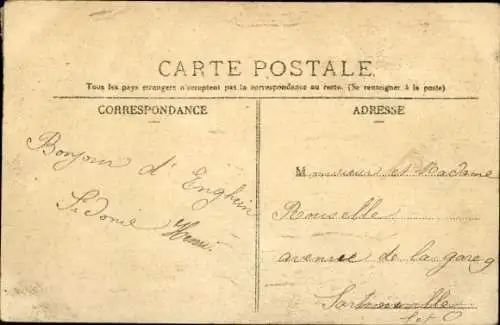 CARTE POSTALE
Tous les pays étrangers n'acceptent pas la correspondance au recto. (Se renseigner à la poste).
CORRESPONDANCE
ADRESSE
Bonjour d'Enghien
Sidonie Henri.
Monsieur et Madame
Rouselle
avenue de la gare 9
Sartrouville
S et O